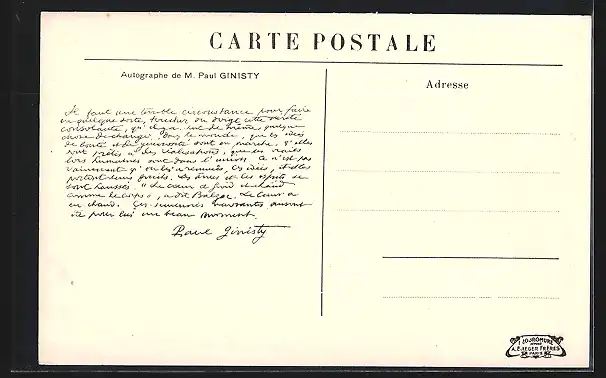 CARTE POSTALE
Autographe de M. Paul GINISTY
Adresse
Il faut une terrible circonstance pour faire
en quelque sorte, toucher du doigt cette vérité
consolante, qu'il y a tout de même quelque
chose de changé, dans le monde, que les idées
de bonté et de générosité sont en marche, qu'elles
sont prêtes à des réalisations, que les vraies
lois humaines sont dans l'union. Ce n'est pas
vainement qu'on les a remuées, ces idées, et elles
portent leurs fruits. Les âmes et les esprits se
sont haussés. "Le cœur a froid et chaud
comme le corps", a dit Balzac. Le cœur a
eu chaud. Ces semaines auront
été pour lui un beau moment.
Paul Ginisty
A. BERGER FRÈRES
PARIS